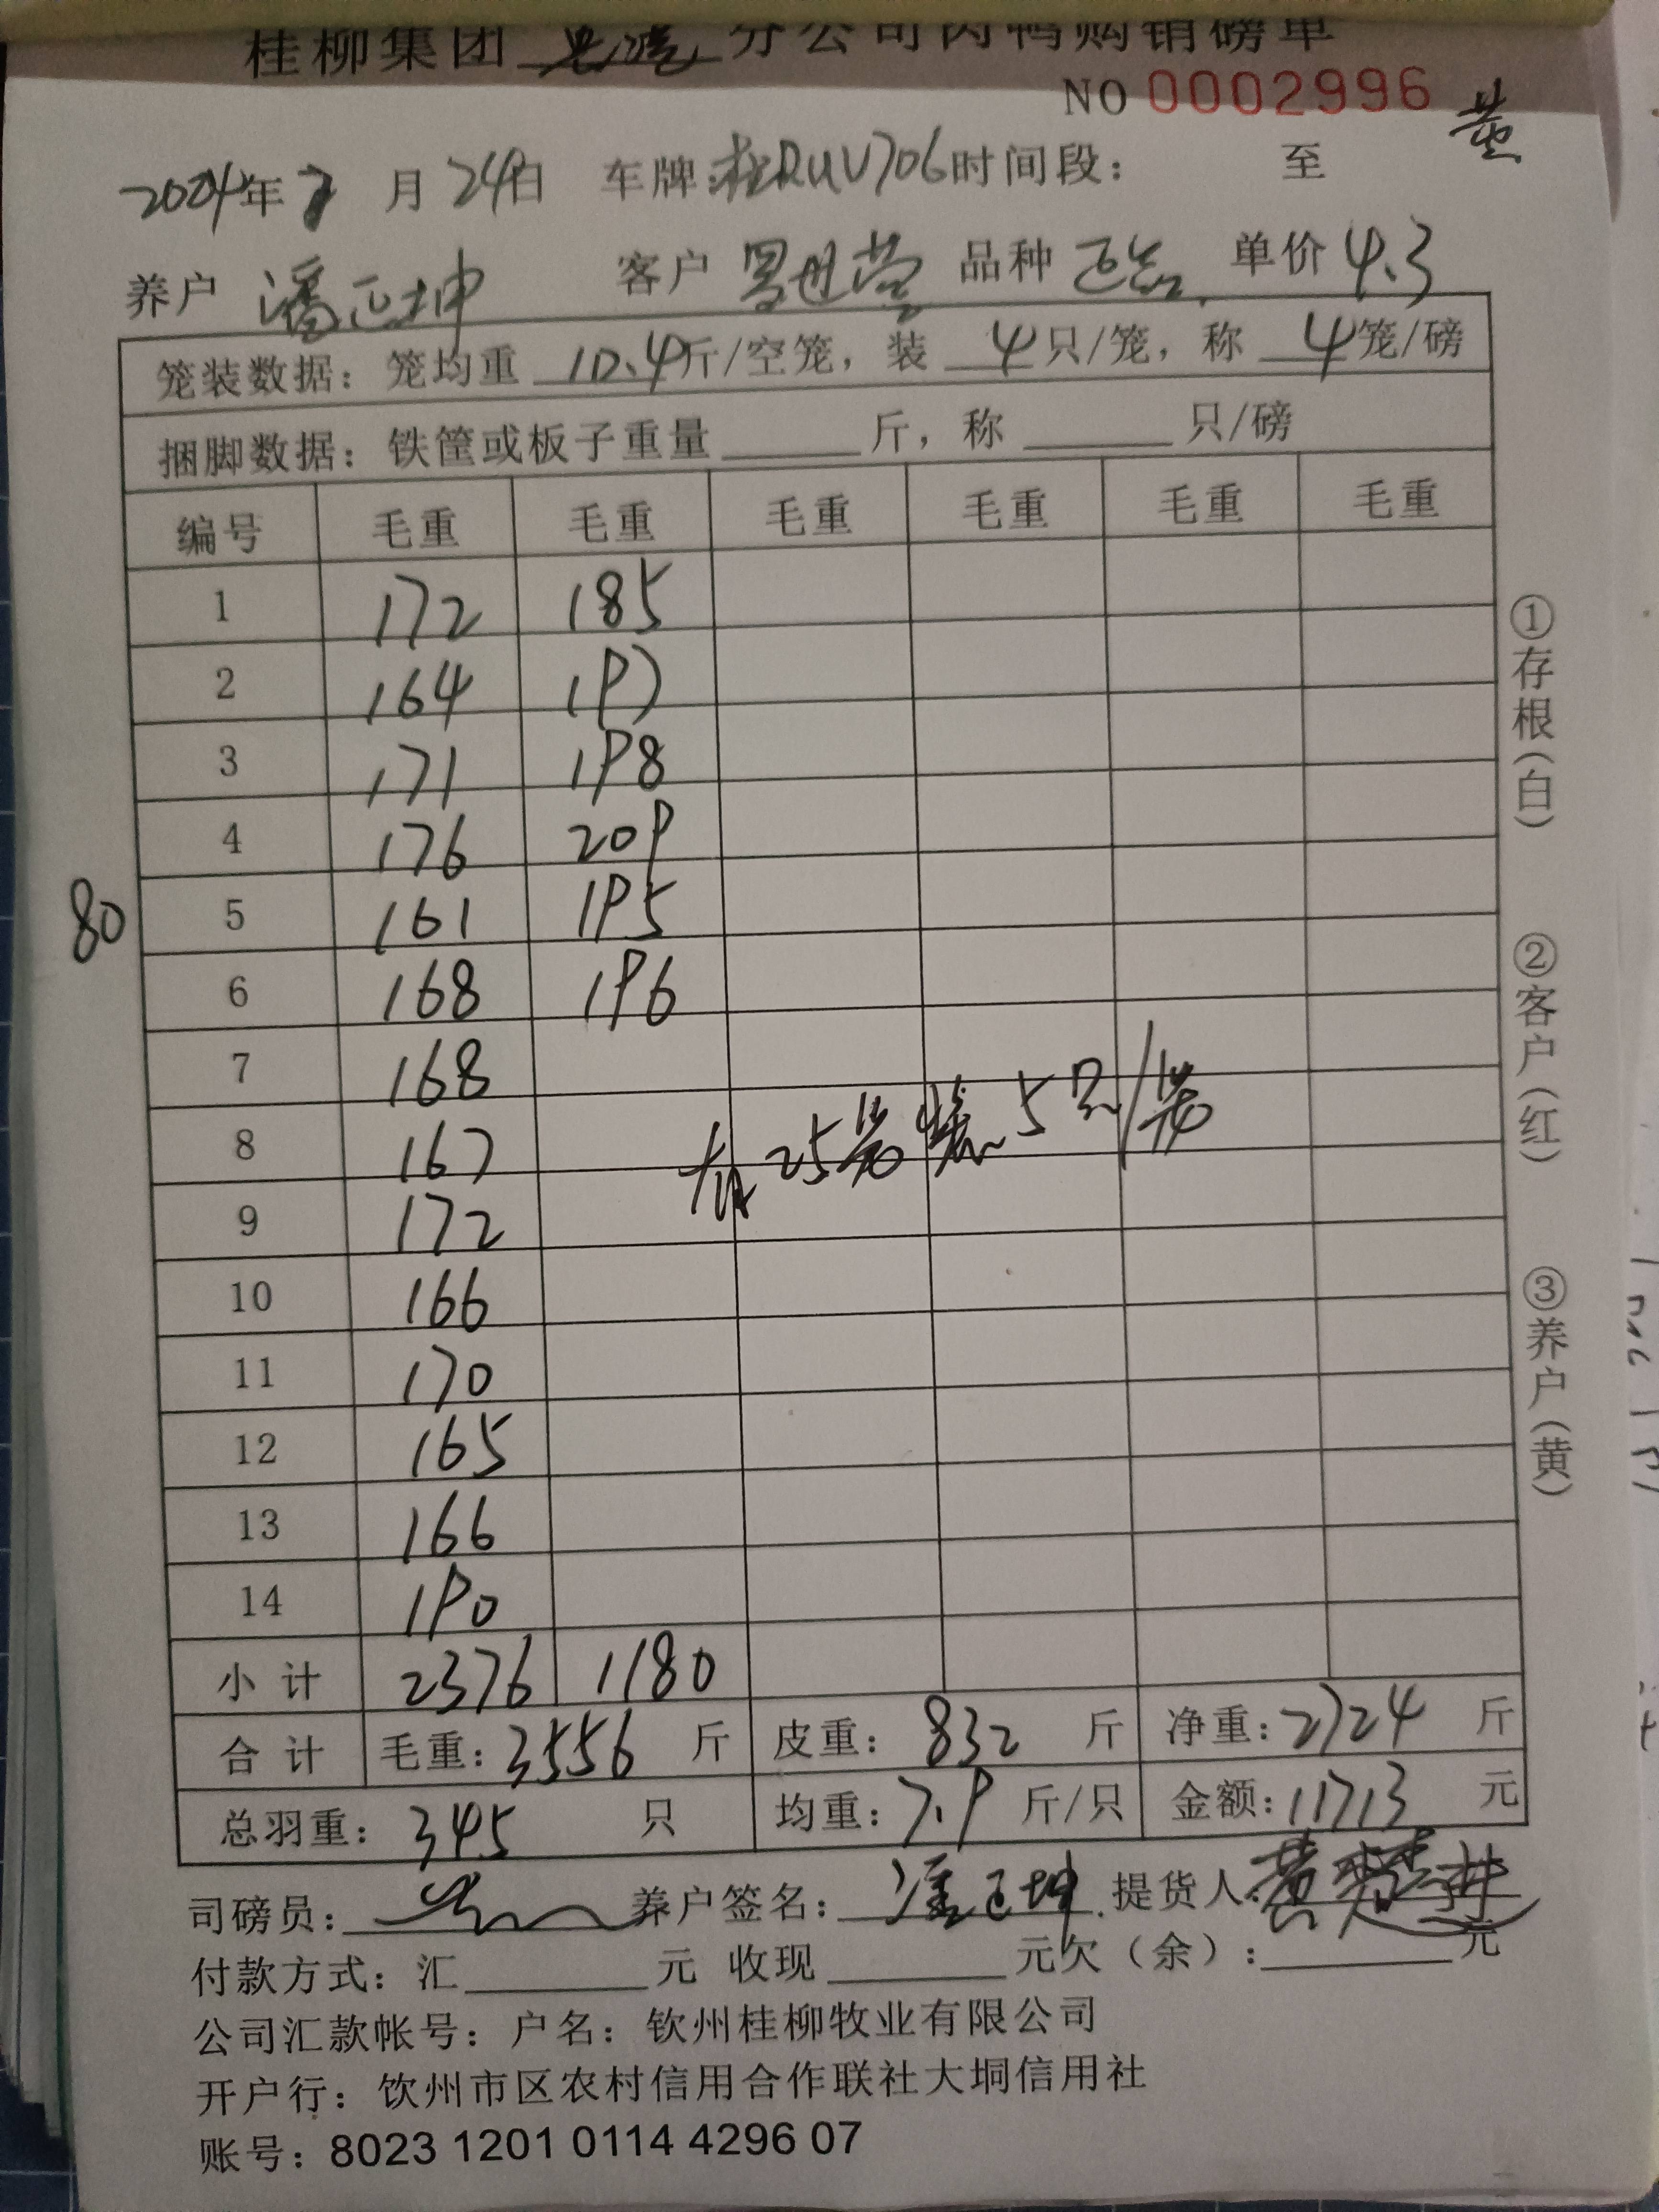 桂柳集团 分公司肉鸭购销磅单
NO 0002996
黄
2024年7月24日 车牌:桂RUV706时间段: 至
养户 潘正坤 客户 品种 正品 单价 4.3
笼装数据: 笼均重 10.4斤/空笼, 装 4只/笼, 称 4笼/磅
捆脚数据: 铁筐或板子重量 斤, 称 只/磅
编号 毛重 毛重 毛重 毛重 毛重 毛重
1 172 185
2 164 197
3 171 198
4 176 209
5 161 195
80
6 168 196
7 168
8 167
有25笼装5只/笼
9 172
10 166
11 170
12 165
13 166
14 190
小计 2376 1180
合计 毛重: 3556 斤 皮重: 832 斤 净重: 2724 斤
总羽重: 345 只 均重: 7.9 斤/只 金额: 11713 元
司磅员: 养户签名: 潘正坤 提货人:
付款方式: 汇 元 收现 元欠(余): 元
公司汇款帐号: 户名: 钦州桂柳牧业有限公司
开户行: 饮州市区农村信用合作联社大垌信用社
账号: 8023 1201 0114 4296 07
①存根(白)
②客户(红)
③养户(黄)